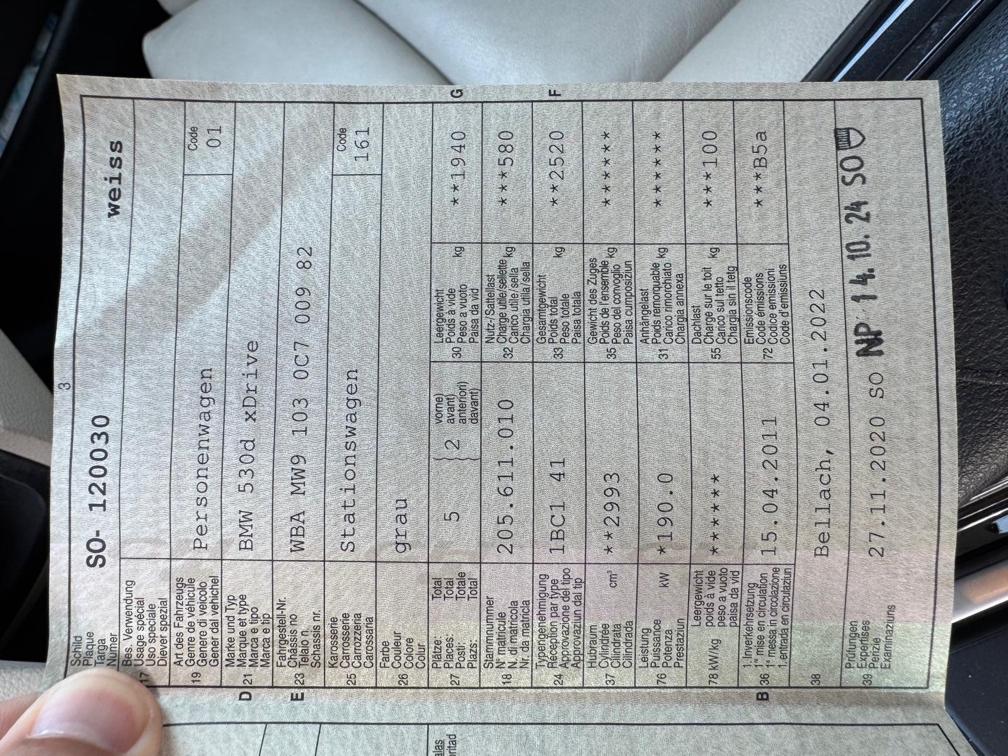 3
Schild
Plaque
Targa
Numer
SO- 120030
weiss
Bes. Verwendung
Usage spécial
Uso speciale
Diever spezial
17
Art des Fahrzeugs
Genre de véhicule
Genere di veicolo
Gener dal vehichel
19
Personenwagen
Code
01
Marke und Typ
Marque et type
Marca e tipo
Marca e tip
D 21
BMW 530d xDrive
Fahrgestell-Nr.
Châssis no
Telaio n.
Schassis nr.
E 23
WBA MW9 103 0C7 009 82
Karosserie
Carrosserie
Carrozzeria
Carossaria
25
Stationswagen
Code
161
Farbe
Couleur
Colore
Colur
26
grau
Plätze: Total
Places: Total
Posti: Totale
Plazs: Total
27
5 } 2
vorne)
avant)
anteriori)
davant)
Leergewicht
Poids à vide
Peso a vuoto
Paisa da vid
30 kg
**1940
G
Stammnummer
N° matricule
N. di matricola
Nr. da matricla
18
205.611.010
Nutz-/Sattellast
Charge utile/sellette
Carico utile/sella
Chargia utila/sella
32 kg
***580
Typengenehmigung
Réception par type
Approvazione del tipo
Approvaziun dal tip
24
1BC1 41
Gesamtgewicht
Poids total
Peso totale
Paisa totala
33 kg
**2520
F
Hubraum
Cylindrée
Cilindrata
Cilindrada
37 cm³
**2993
Gewicht des Zuges
Poids de l'ensemble
Peso del convoglio
Paisa cumposiziun
35 kg
******
Leistung
Puissance
Potenza
Prestaziun
76 kW
*190.0
Anhängelast
Poids remorquable
Carico rimorchiato
Chargia annexa
31 kg
******
Leergewicht
poids à vide
peso a vuoto
paisa da vid
78 kW/kg
******
Dachlast
Charge sur le toit
Carico sul tetto
Chargia sin il tetg
55 kg
***100
1. Inverkehrsetzung
1re mise en circulation
1a messa in circolazione
1. entrada en circulaziun
B 36
15.04.2011
Emissionscode
Code émissions
Codice emissioni
Code d'emissiuns
72
***B5a
38
Bellach, 04.01.2022
Prüfungen
Expertises
Perizie
Examinaziuns
39
27.11.2020 SO NP 14.10.24 SO